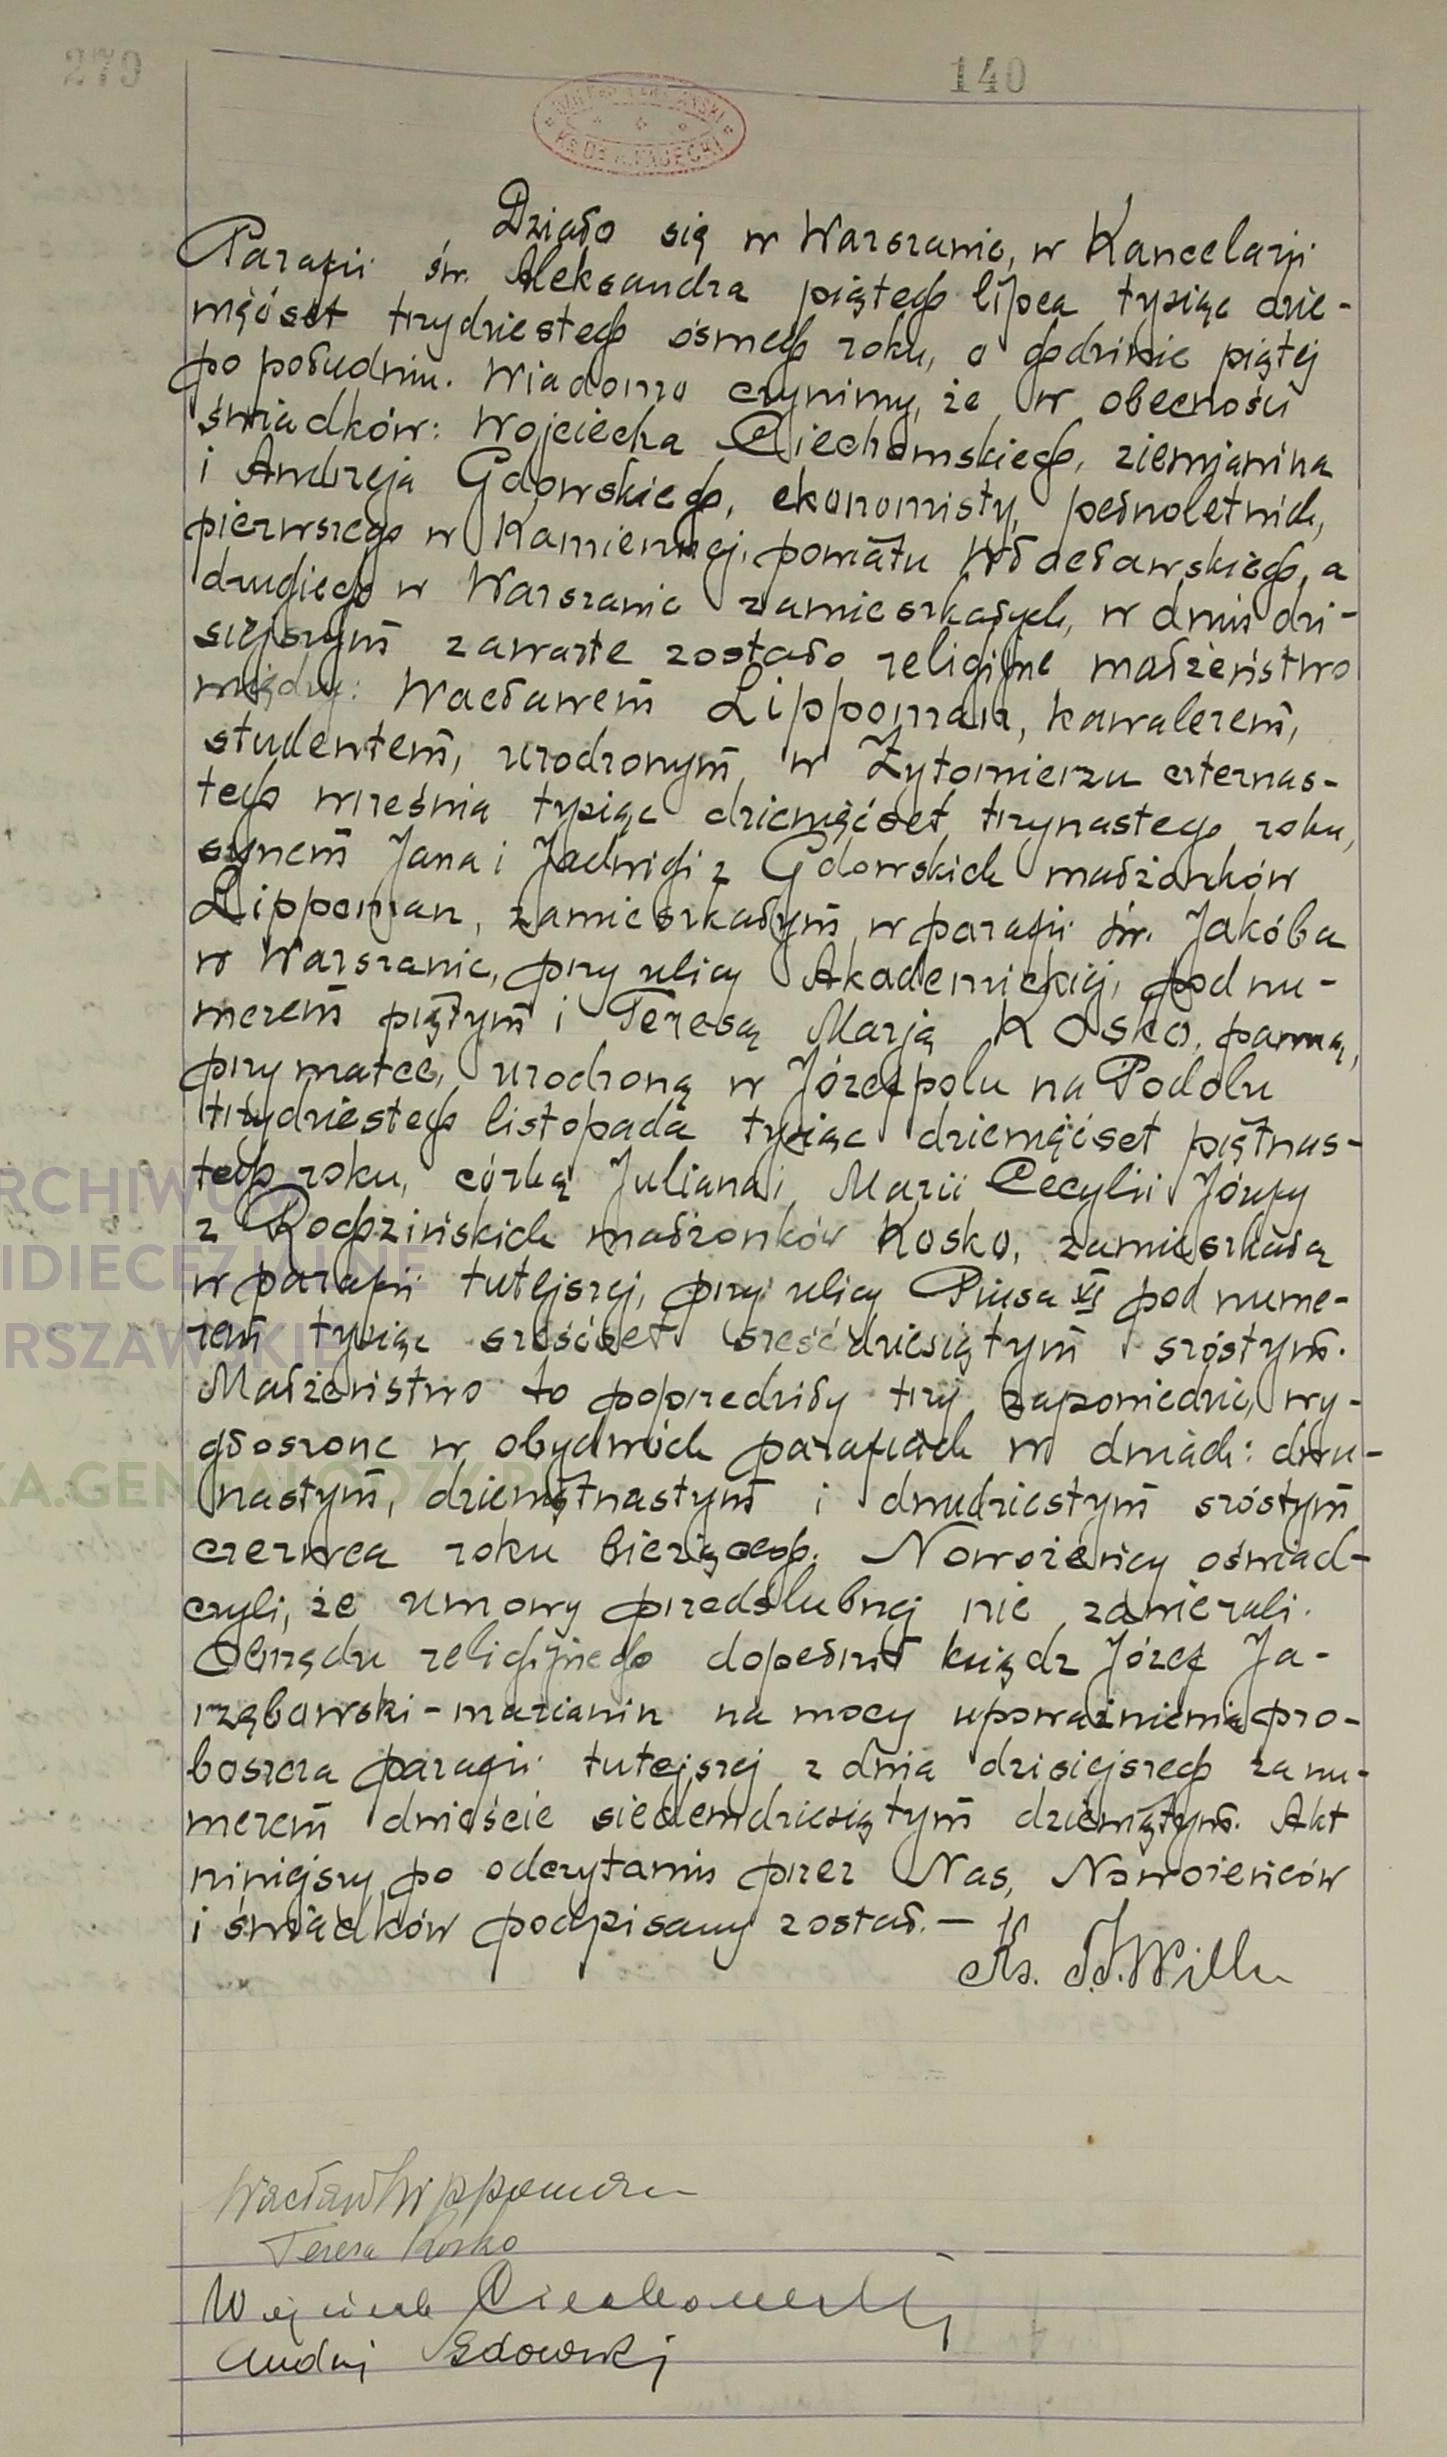 279
140
Działo się w Warszawie, w Kancelarji
Parafii św. Aleksandra piątego lipca tysiąc dzie-
więćset trzydziestego ósmego roku, o godzinie piątej
po południu. Wiadomo czynimy, że w obecności
świadków: Wojciecha Ciechomskiego, ziemianina
i Andrzeja Gdowskiego, ekonomisty, pełnoletnich,
pierwszego w Kamiennej, powiatu Włocławskiego, a
drugiego w Warszawie zamieszkałych, w dniu dzi-
siejszym zawarte zostało religijne małżeństwo
między: Wacławem Lippoman, kawalerem,
studentem, urodzonym w Żytomierzu czternas-
tego września tysiąc dziewięćset trzynastego roku,
synem Jana i Jadwigi z Gdowskich małżonków
Lippoman, zamieszkałym w parafii św. Jakóba
w Warszawie, przy ulicy Akademickiej, pod nu-
merem piątym i Teresą Marją Kosko, panną,
przy matce, urodzoną w Józefpolu na Podolu
trzydziestego listopada tysiąc dziewięćset piętnas-
tego roku, córką Juljana i Marii Cecylii Józefy
z Rogozińskich małżonków Kosko, zamieszkałą
w parafii tutejszej, przy ulicy Piusa XI pod nume-
rem tysiąc sześćset sześćdziesiątym szóstym.
Małżeństwo to poprzedziły trzy zapowiedzie, wy-
głoszone w obydwóch parafiach w dniach: dwu-
nastym, dziewiętnastym i dwudziestym szóstym
czerwca roku bieżącego. Nowożeńcy oświad-
czyli, że umowy przedślubnej nie zawierali.
Obrzędu religijnego dopełnił ksiądz Józef Ja-
rzębowski - marianin na mocy upoważnienia pro-
boszcza parafii tutejszej z dnia dzisiejszego za nu-
merem dwieście siedemdziesiątym dziewiątym. Akt
niniejszy po odczytaniu przez Nas, Nowożeńców
i świadków podpisany został. —
Ks.
Wacław Lippoman
Teresa Kosko
Wojciech Ciechomski
Andrzej Gdowski